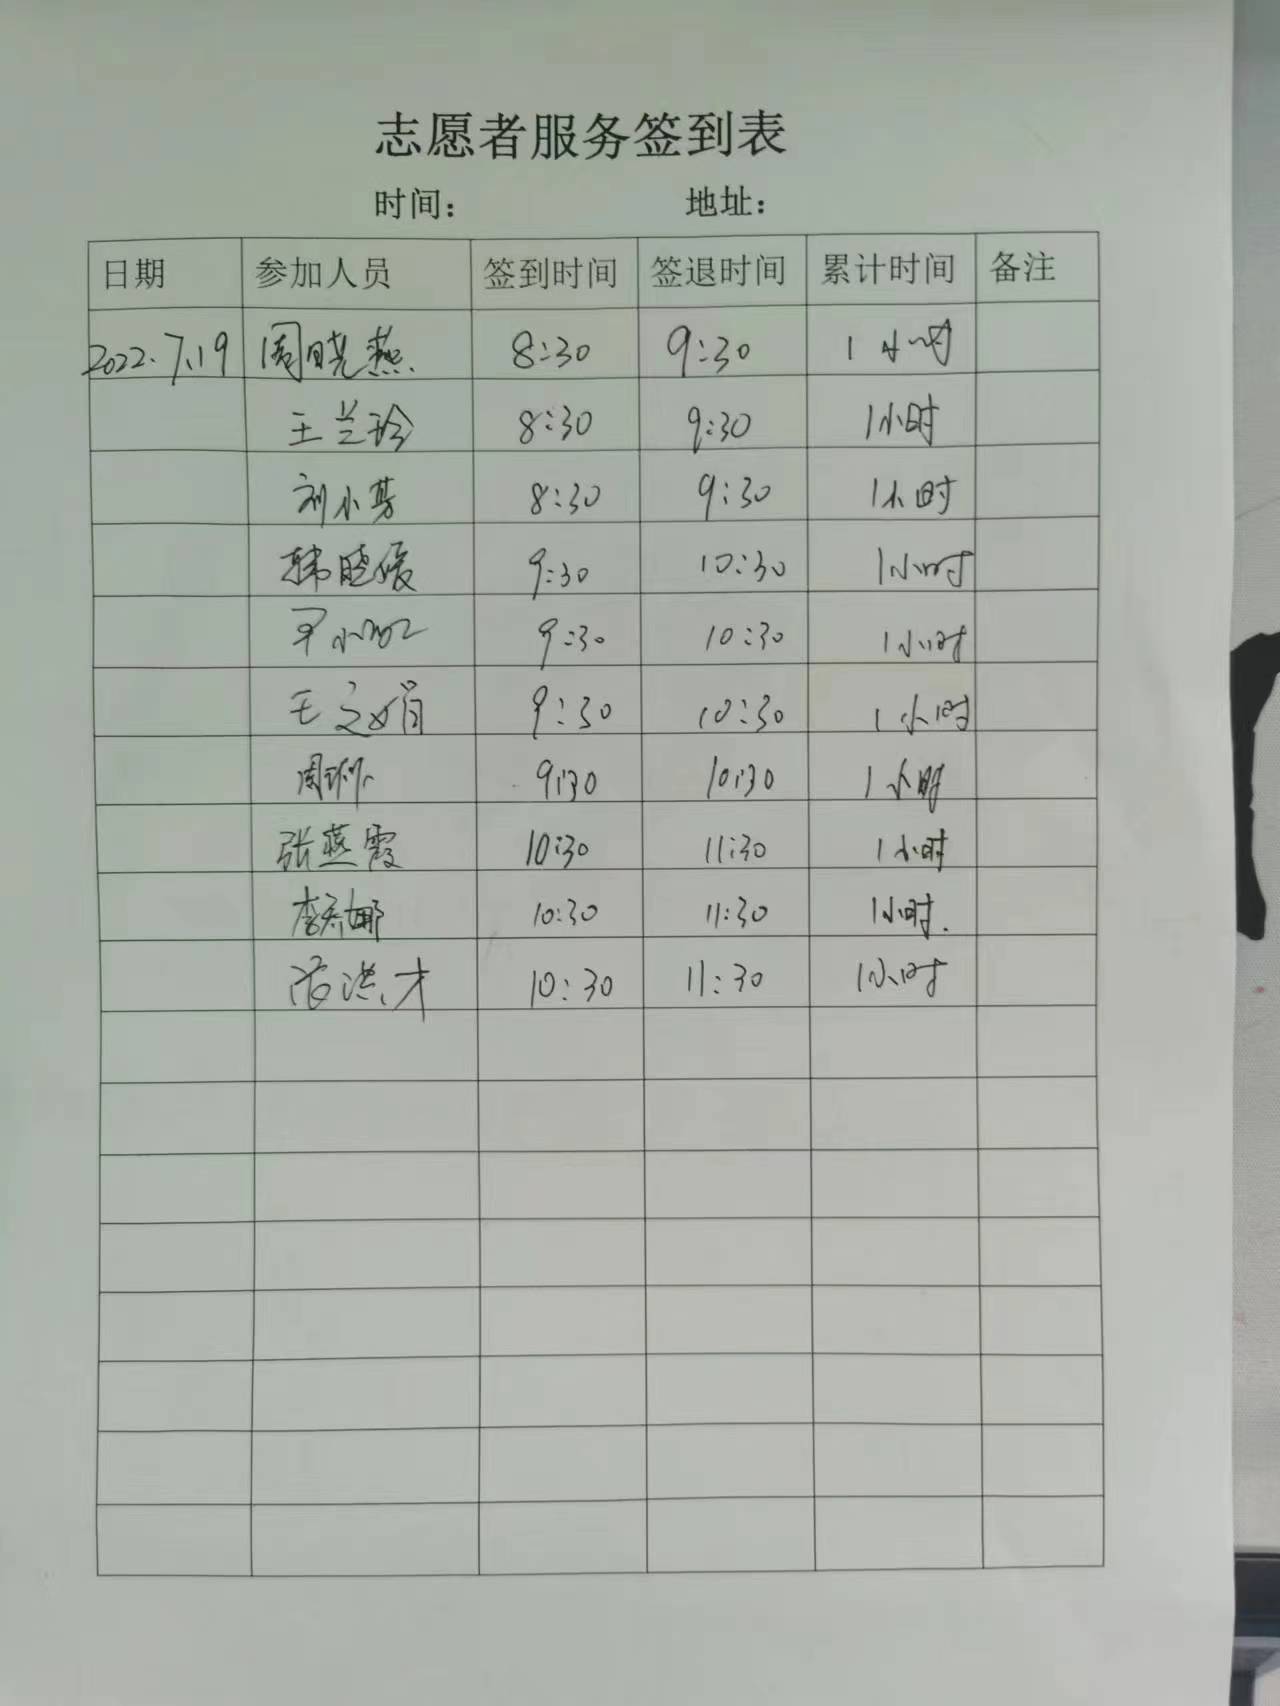 志愿者服务签到表
时间： 地址：
日期 参加人员 签到时间 签退时间 累计时间 备注
2022.7.19 周晓燕 8:30 9:30 1小时
王兰玲 8:30 9:30 1小时
刘小芳 8:30 9:30 1小时
韩晓媛 9:30 10:30 1小时
小 9:30 10:30 1小时
王文娟 9:30 10:30 1小时
周琳 9:30 10:30 1小时
张燕霞 10:30 11:30 1小时
李娜 10:30 11:30 1小时.
洪才 10:30 11:30 1小时